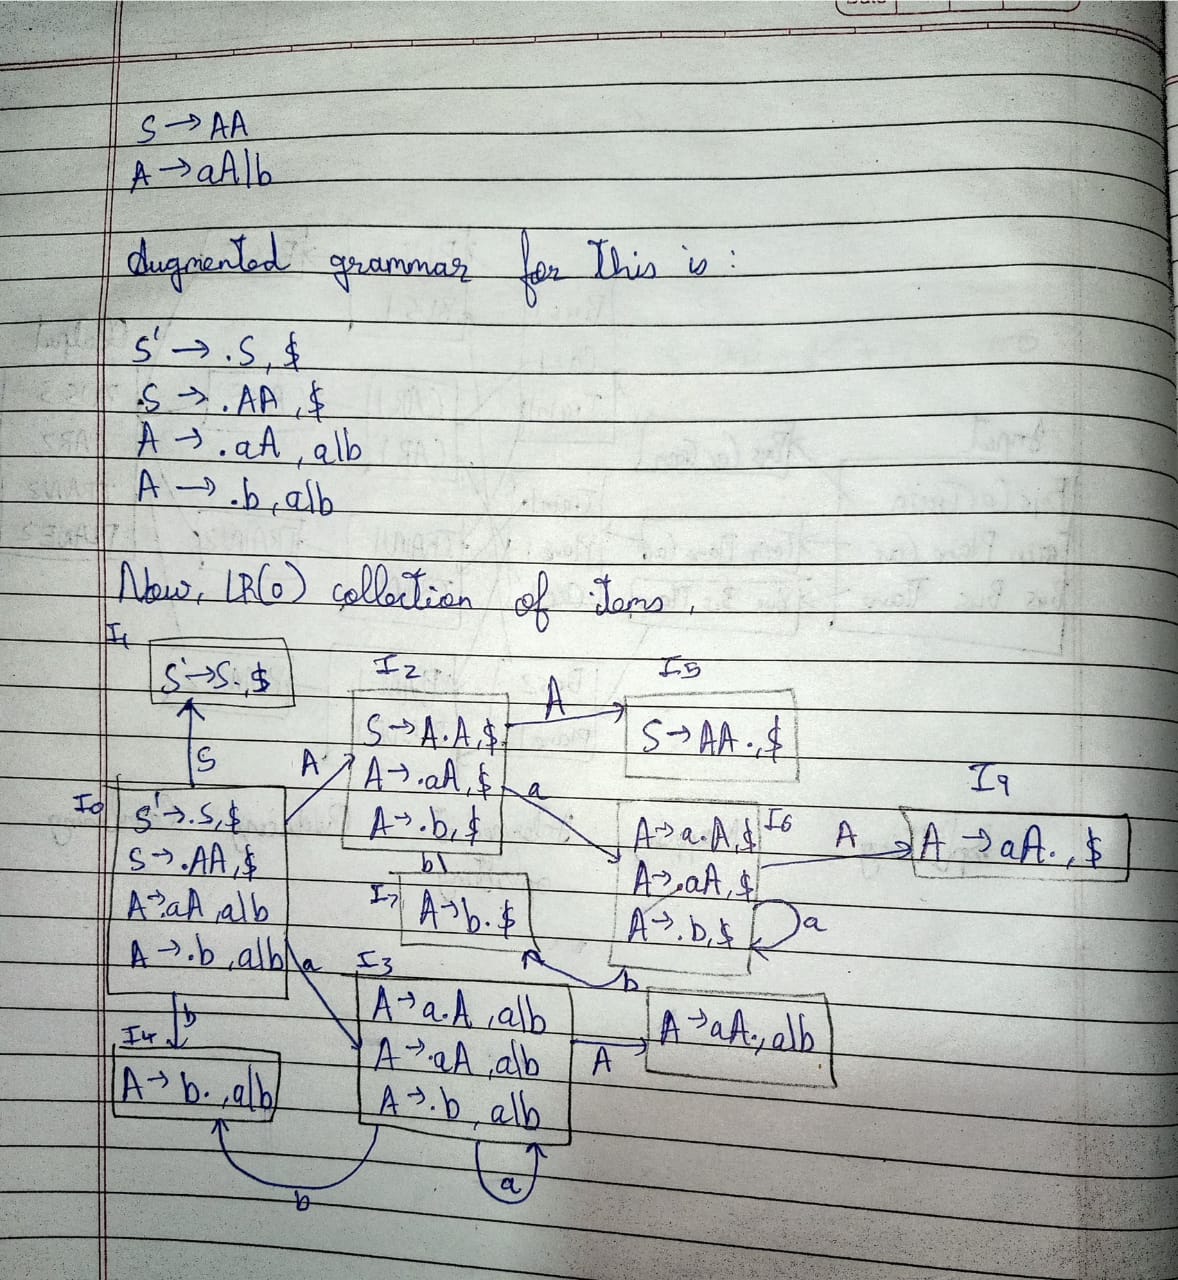 S → AA
A → aA|b
Augmented grammar for This is :
S' → .S, $
S → . AA, $
A → .aA, a|b
A → .b, a|b
Now, LR(0) collection of items,
I1
S' → S., $
S
I2
S → A.A, $
A → .aA, $
A → .b, $
A
A
I5
S → AA., $
I0
S' → .S, $
S → .AA, $
A → .aA, a|b
A → .b, a|b
a
I6
A → a.A, $
A → .aA, $
A → .b, $
A
I9
A → aA., $
a
b
I7
A → b. $
b
a
I3
A → a.A, a|b
A → .aA, a|b
A → .b, a|b
A
A → aA., a|b
b
I4
A → b., a|b
b
a